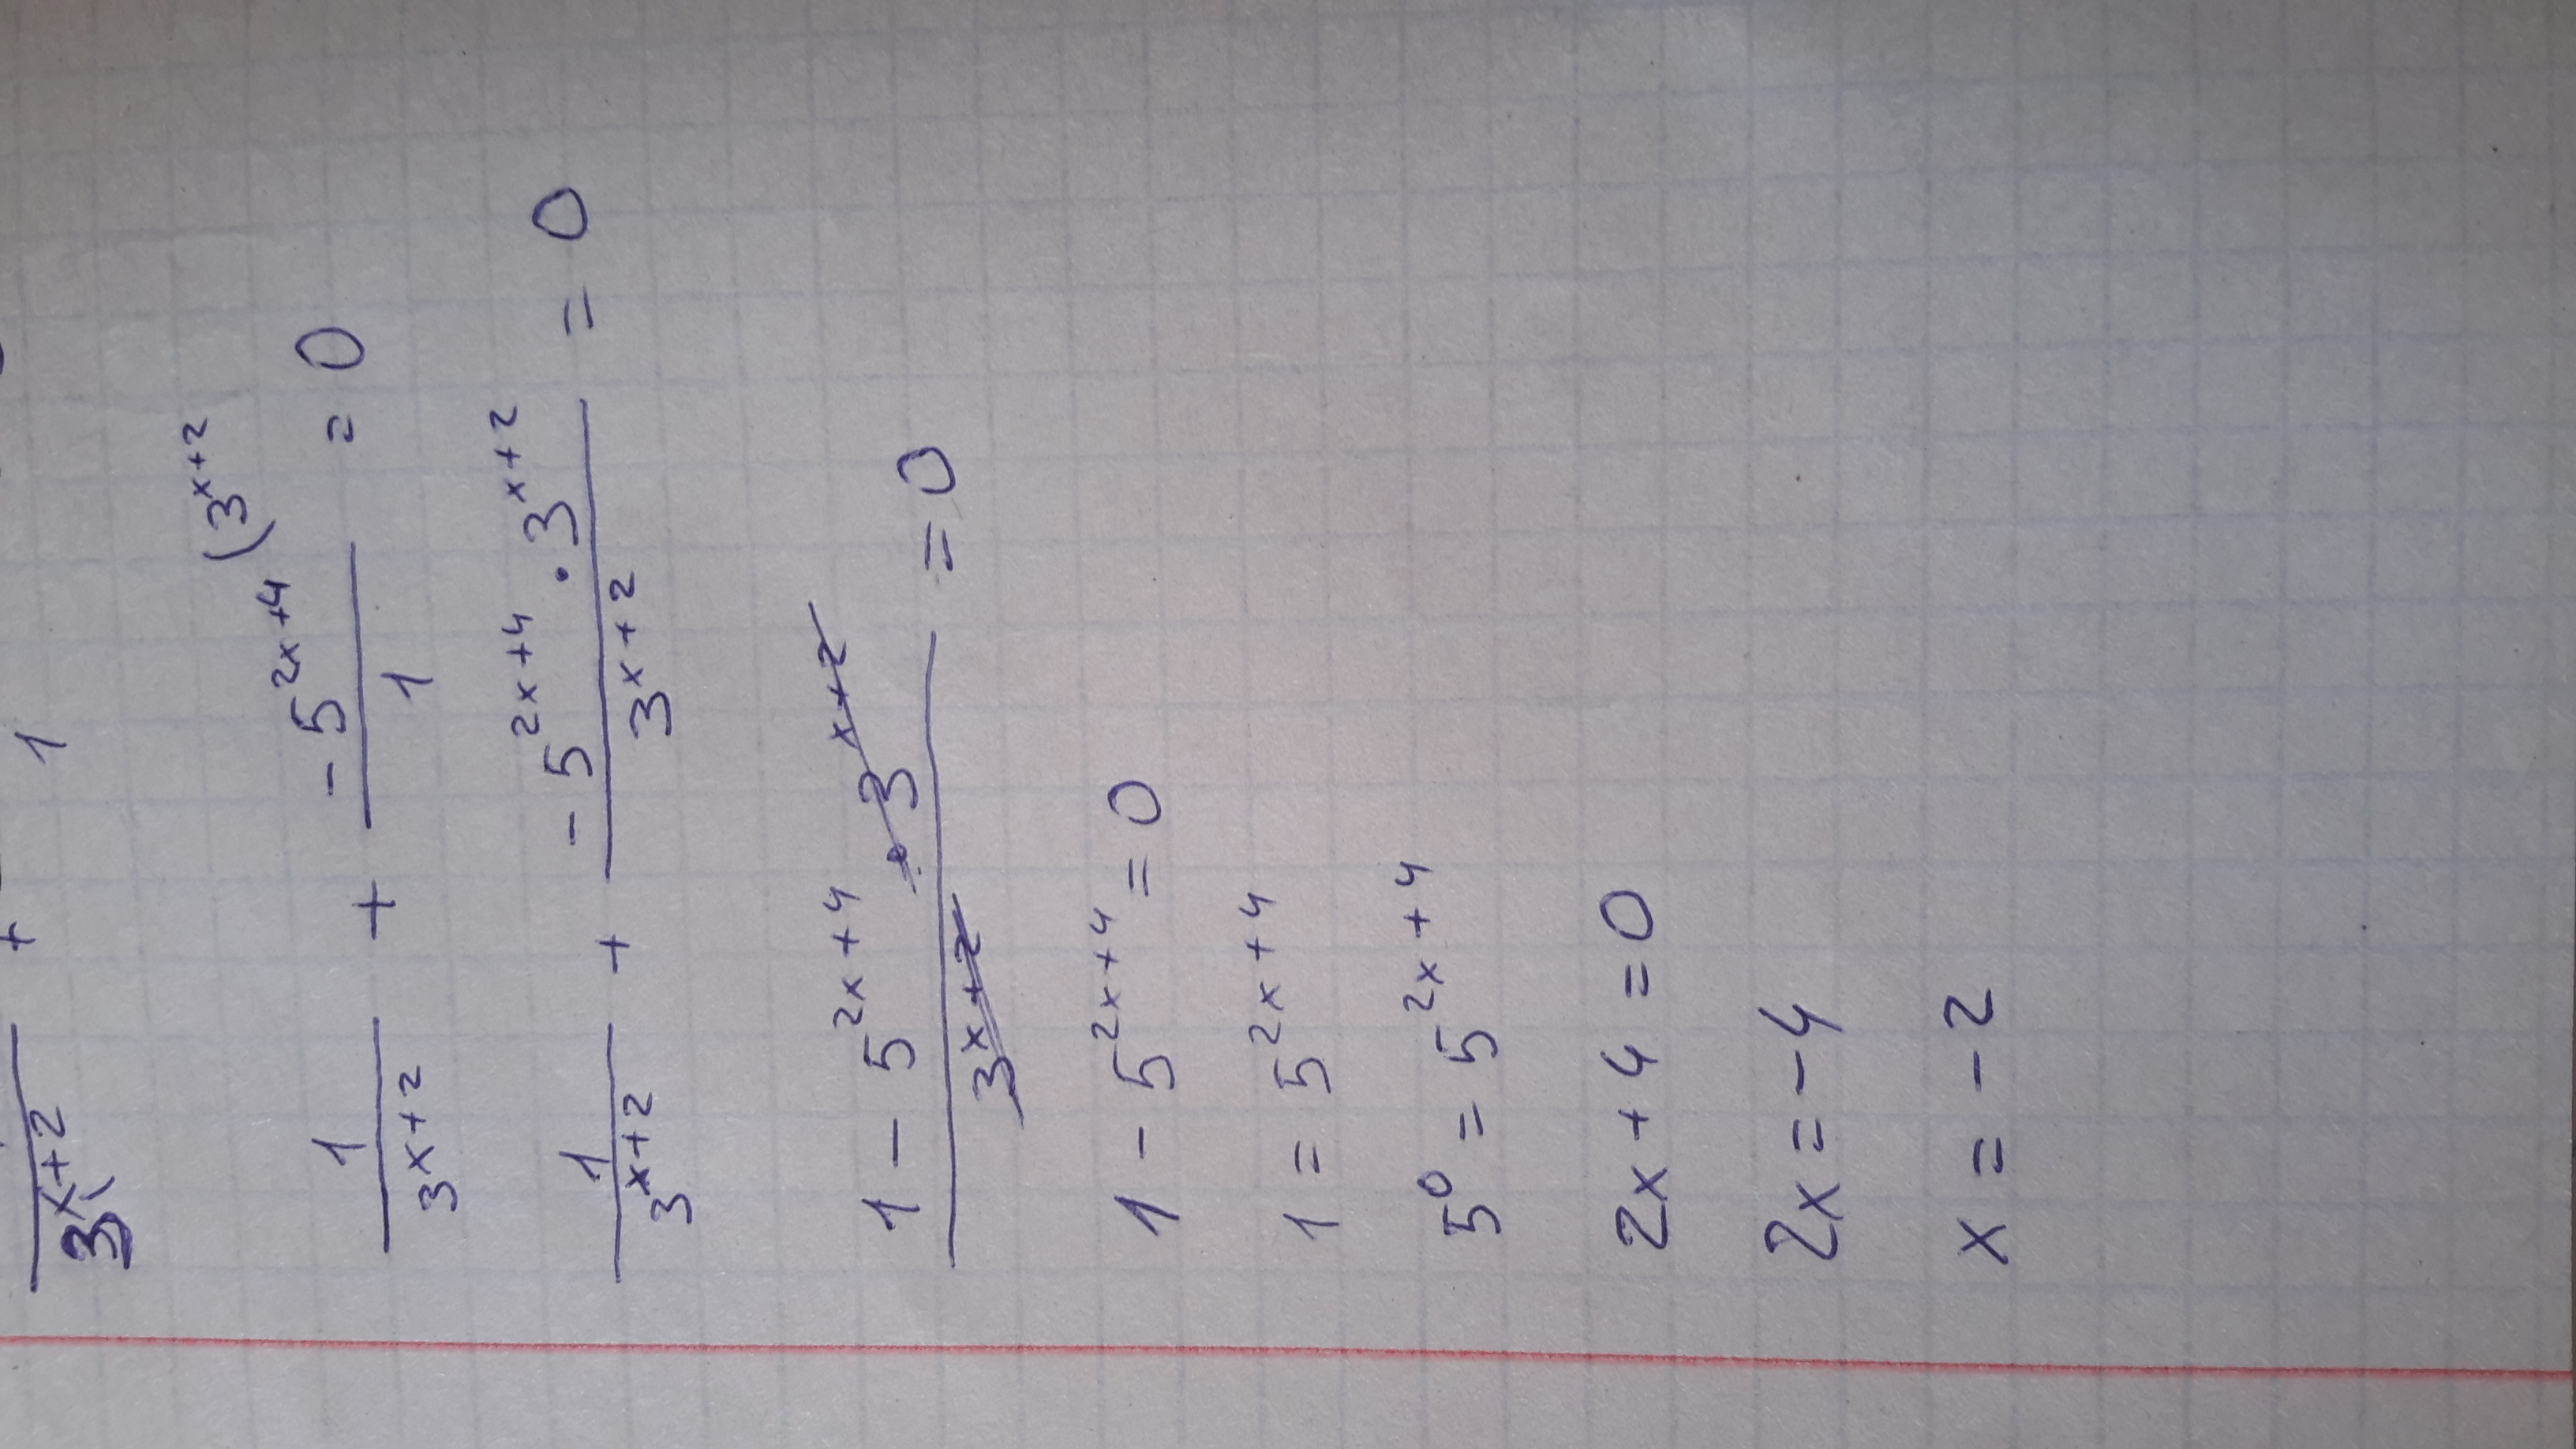 + 1
3^{x+2}
(3^{x+2}
\frac{1}{3^{x+2}} + \frac{-5^{2x+4}}{1} = 0
\frac{1}{3^{x+2}} + \frac{-5^{2x+4} \cdot 3^{x+2}}{3^{x+2}} = 0
\frac{1 - 5^{2x+4} \cdot 3^{x+2}}{3^{x+2}} = 0
1 - 5^{2x+4} = 0
1 = 5^{2x+4}
5^0 = 5^{2x+4}
2x + 4 = 0
2x = -4
x = -2